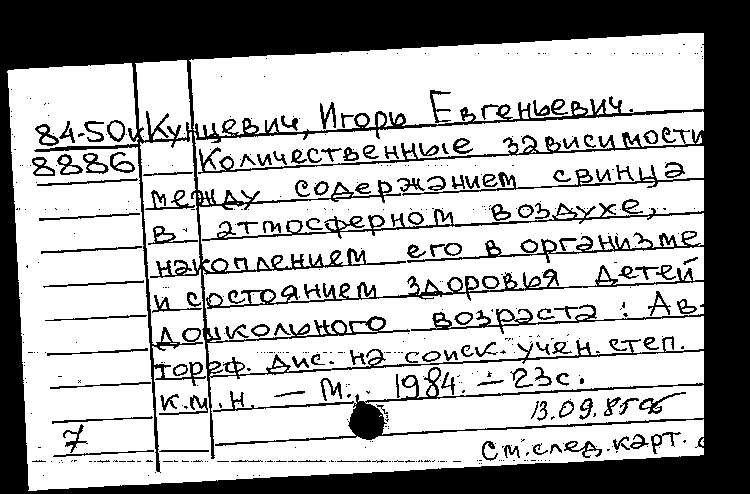 84-50к Кунцевич, Игорь Евгеньевич.
8886 Количественные зависимости
между содержанием свинца
в атмосферном воздухе,
накоплением его в организме
и состоянием здоровья детей
дошкольного возраста : Ав-
тореф. дис. на соиск. учен. степ.
к.м.н. — М., 1984. — 23с.
13.09.85
7
См. след. карт.